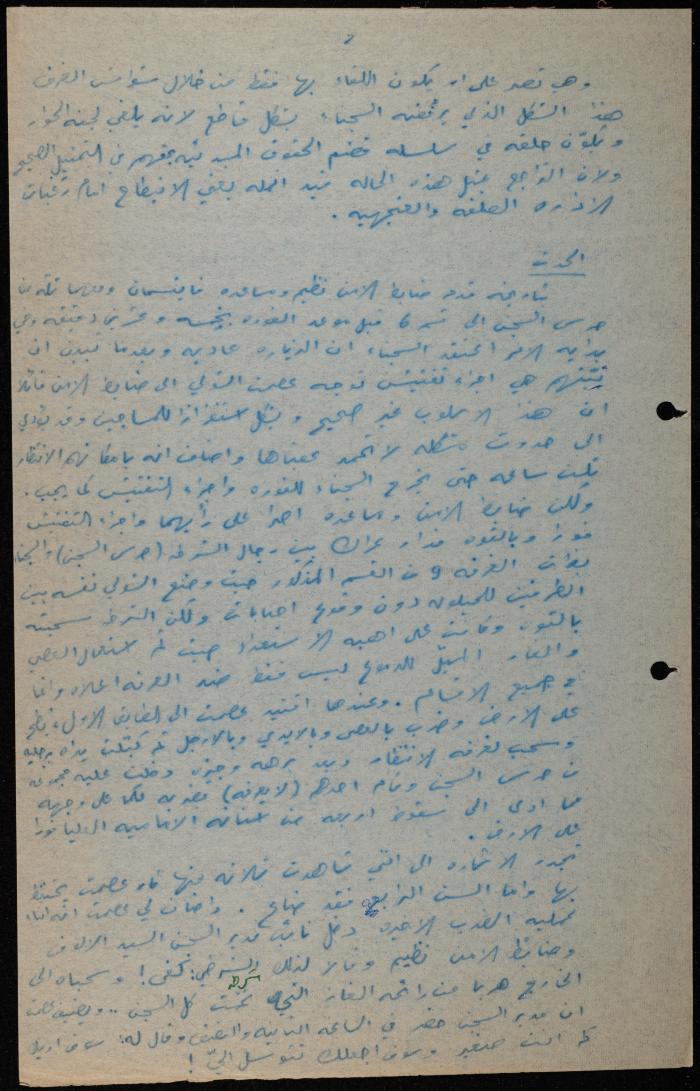 ٢
وهي تصر على ان يكون اللقاء بها فقط من خلال شواش الغرف
هذا الشكل الذي يرفضه السجناء بشكل قاطع لانه يلغي لجنة الحوار
وتكون حلقة في سلسلة قضم الحقوق المسـ بحقهم في التمثيل الصحيح
ولان التراجع بمثل هذه الحالة يعني الانبطاح امام رغبات
الادارة الصلفة والعنجهية .
الحدث
بتاريخه قدم ضابط الامن نظيم ومساعده ومعهما ثلة من
حرس السجن الى قسم قبل موعد الفورة بخمسة وعشرين دقيقة وفي
بداية الامر اعتقد السجناء ان الزيارة عادية وبعدما تبين ان
نيتهم هي اجراء تفتيش توجه عصمت الى ضابط الامن قائلا
ان هذا الاسلوب غير صحيح ويشكل استفزازا للمساجين وقد يؤدي
الى حدوث مشكلة لا تحمد عقباها واضاف انه بامكانهم الانتظار
ثلث ساعة حتى يخرج السجناء للفورة واجراء التفتيش كما يجب .
ولكن ضابط الامن ومساعده اصرا على رأيهما واجراء التفتيش
فورا وبالقوة فدار عراك بين رجال الشرطة (حرس السجن) والسجناء
الغرفة 9 من القسم المذكور حيث وضع نفسه بين
الطرفين للحيلولة دون وقوع اصابات ولكن الشرطة سحبته
بالقوة وكانت على اهبة الاستعداد حيث تم استعمال العصي
والغاز المسيل للدموع ليس فقط ضد الغرفة اعلاه وانما
في جميع الاقسام . وعندها اقتيد عصمت الى الطابق الاول ،
على الارض وضرب بالعصي وبالايدي وبالارجل ثم كبلت يداه برجليه
وسحب لغرفة الانتظار وبعد برهة وجيزة دخلت عليه مجموعة
من حرس السجن وقام احدهم (لا يعرفه) بضربه على وجهه
مما ادى الى سقوط اربعة من اسنانه الامامية العليا فورا
على الارض .
تجدر الاشارة الى انني شاهدت ثلاثة منها كان عصمت يحتفظ
بها واما السن الرابع فقد ضاع . واضاف لي عصمت انه اثناء
عملية الضرب الاخيرة دخل نائب مدير السجن السيد
وضابط الامن نظيم وقالا لذلك الشرطي : كفى ! وسحباه الى
الخارج هربا من رائحة الغاز كل السجن .. ويضيف عصمت
ان مدير السجن حضر في الساعة الثانية والنصف وقال له : سوف اريك
كم انت صغير وسوف اجعلك تتوسل اليّ !